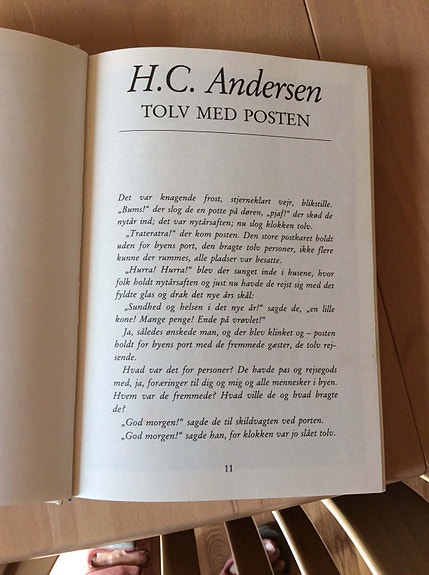 H.C. Andersen
TOLV MED POSTEN
Det var knagende frost, stjerneklart vejr, blikstille.
„Bums!“ der slog de en potte på døren, „pjaf!“ der skød de
nytår ind; det var nytårsaften; nu slog klokken tolv.
„Trateratra!“ der kom posten. Den store postkaret holdt
uden for byens port, den bragte tolv personer, ikke flere
kunne der rummes, alle pladser var besatte.
„Hurra! Hurra!“ blev der sunget inde i husene, hvor
folk holdt nytårsaften og just nu havde de rejst sig med det
fyldte glas og drak det nye års skål:
„Sundhed og helsen i det nye år!“ sagde de, „en lille
kone! Mange penge! Ende på vrøvlet!“
Ja, således ønskede man, og der blev klinket og – posten
holdt for byens port med de fremmede gæster, de tolv rej-
sende.
Hvad var det for personer? De havde pas og rejsegods
med, ja, foræringer til dig og mig og alle mennesker i byen.
Hvem var de fremmede? Hvad ville de og hvad bragte
de?
„God morgen!“ sagde de til skildvagten ved porten.
„God morgen!“ sagde han, for klokken var jo slået tolv.
11